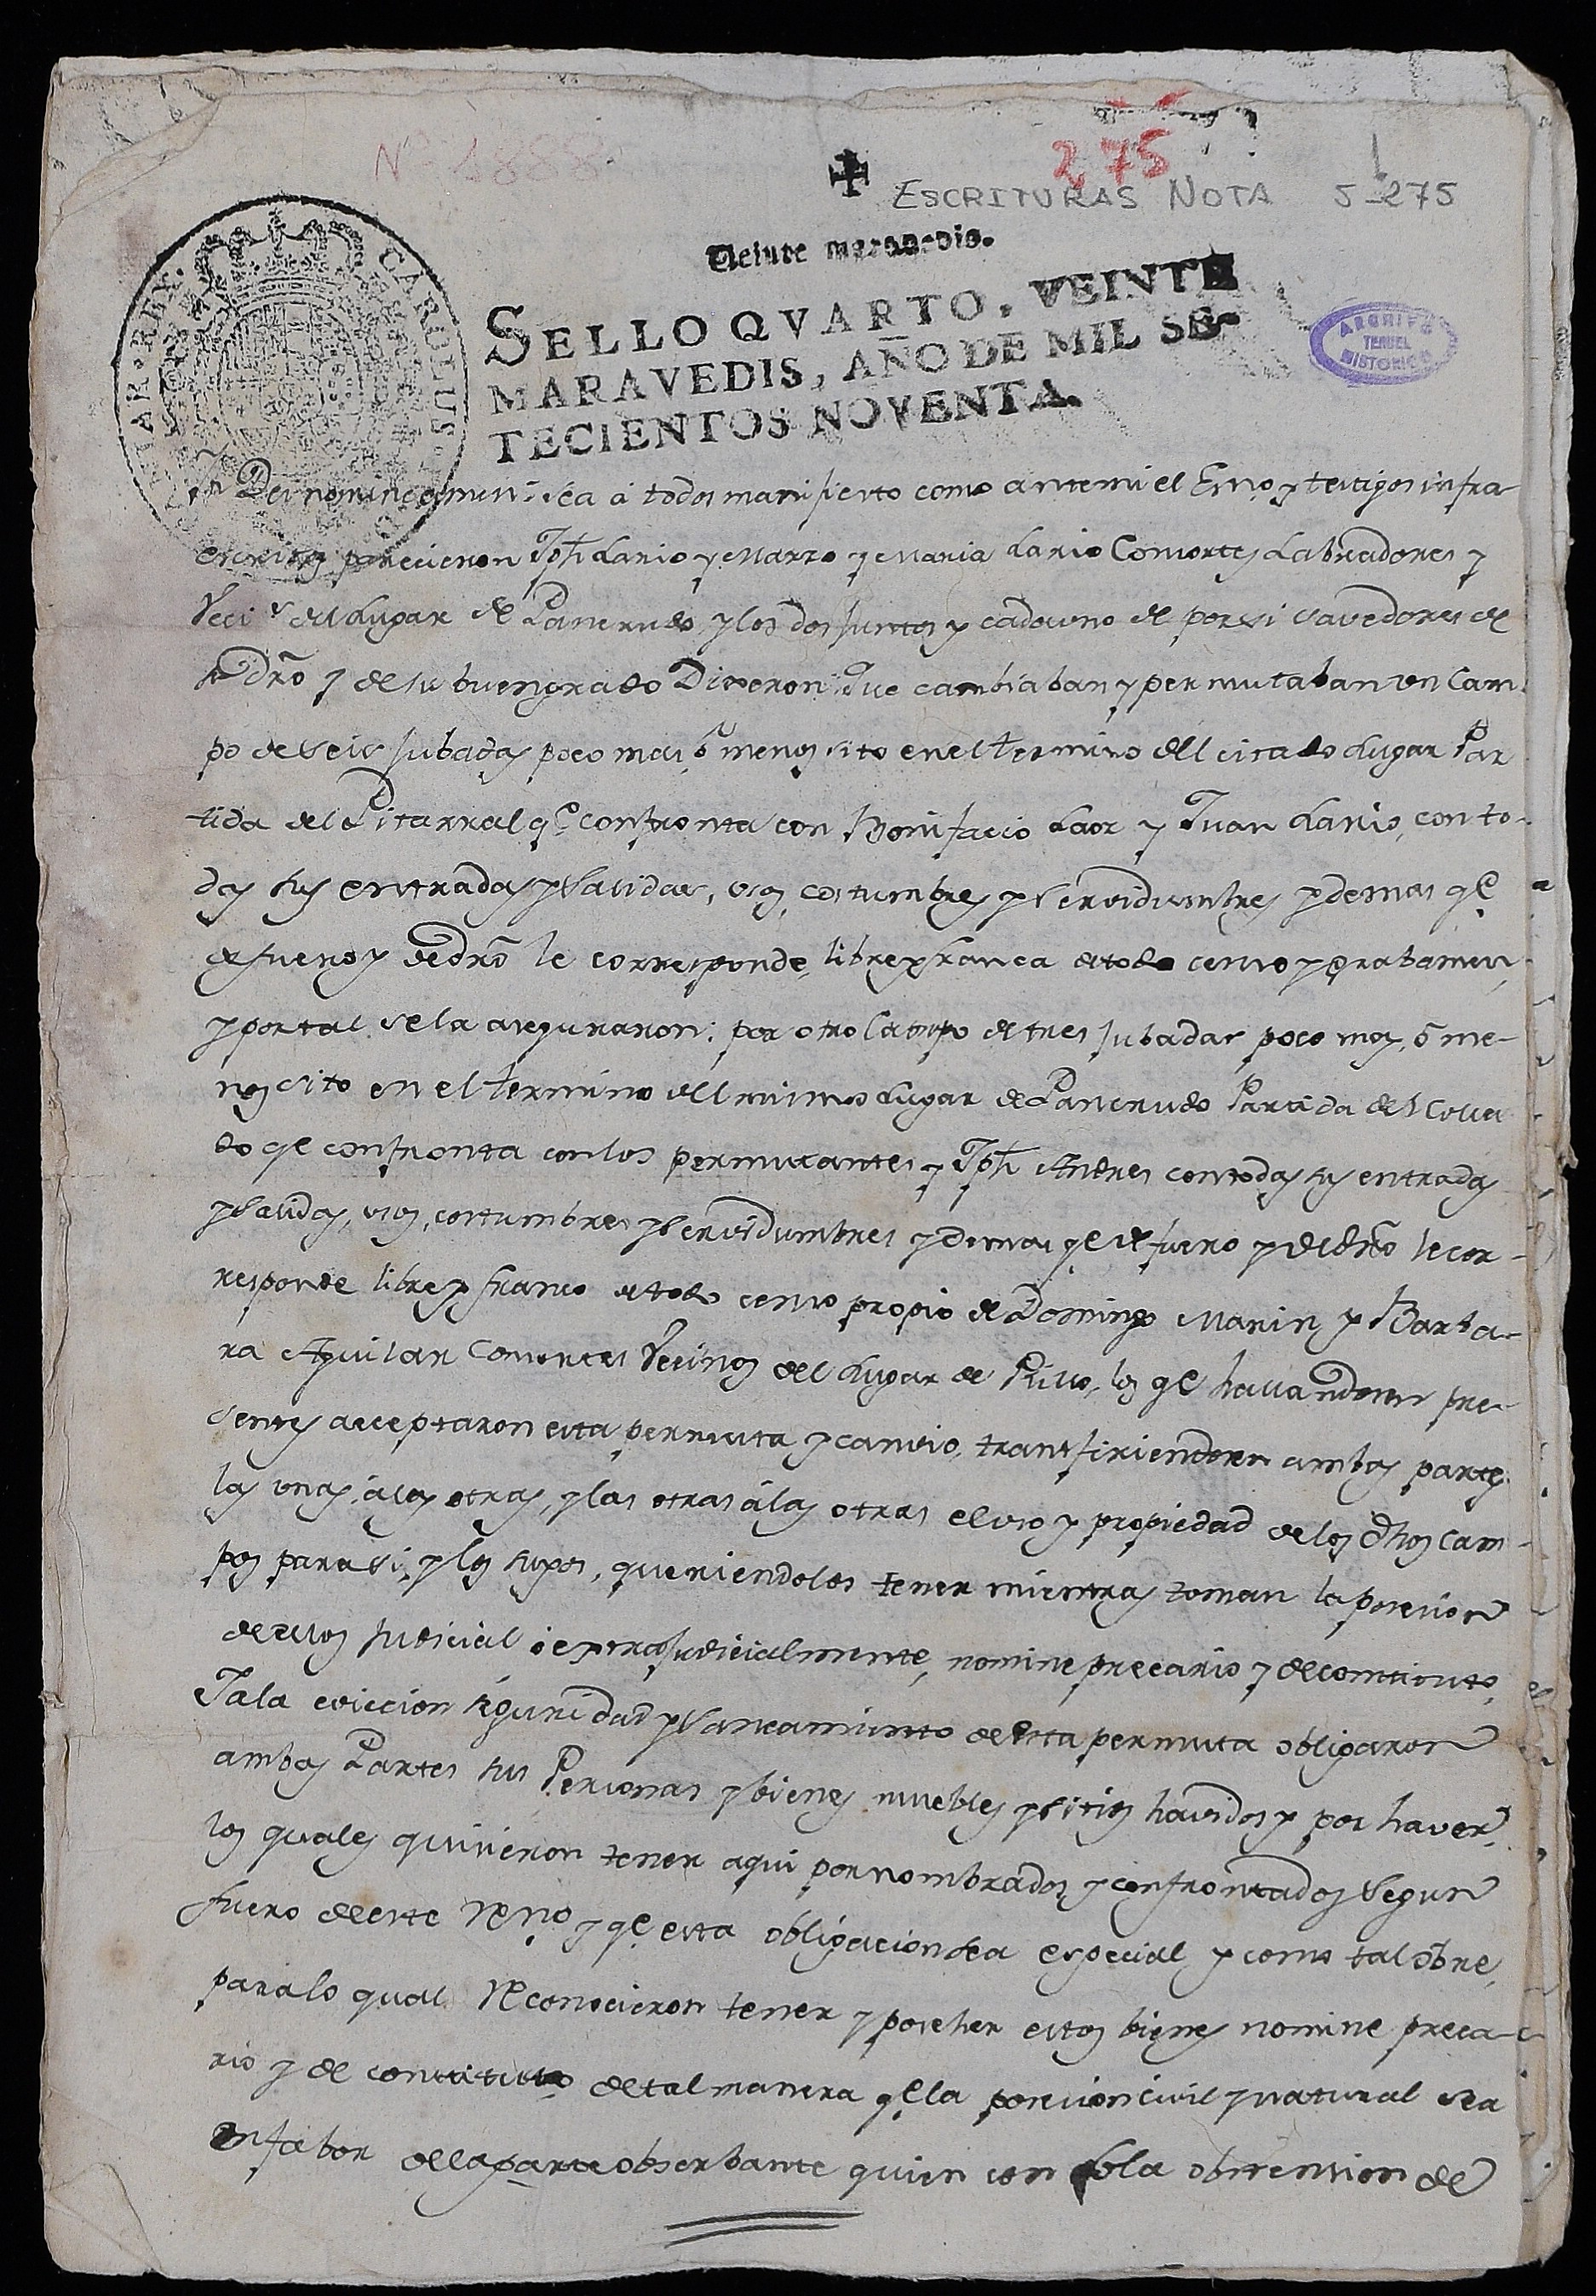 Nº 1888
275
ESCRITURAS NOTA 5-275
Veinte maravedis.
SELLO QVARTO, VEINTE
MARAVEDIS, AÑO DE MIL SE-
TECIENTOS NOVENTA.
CAROLUS
REX
ARCHIVO
TERUEL
HISTORICO
In Dei nomine amen: sea á todos manifiesto como antemi el Esno y testigos infra-
escritos parecieron Jph Lario y Marzo y Maria Lario Consortes Labradores y
Veci.s del Lugar de Pancrudo, y los dos juntos y cadauno de porsi savedores de
su dro y de su buen grado Dixeron: Que cambiaban y permutaban un Cam-
po de seis jubadas poco mas, ó menos sito en el termino dell citado Lugar Par
tida del Pitarral q.e confronta con Bonifacio Laor y Juan Lario, con to-
das sus entradas y salidas, usos, costumbres y servidumbres y demas q.e
de fuero y de dro le corresponde, libre y franca de todo censo y grabamen,
y por tal se la aseguraron: por otro Campo de tres jubadas poco mas, ó me-
nos sito en el termino dell mismo Lugar de Pancrudo Partida del Colla
do q.e confronta con los permutantes y Jph Andres con todas sus entradas
y salidas, usos, costumbres y servidumbres y demas q.e de fuero y de dro le cor-
responde libre y franco de todo censo propio de Domingo Marin y Barba-
ra Aguilar Consortes Vecinos del Lugar de Rillo, los q.e hallandose pre-
sentes acceptaron esta permuta y cambio, transfiriendose ambas partes
las unas, á las otras, y las otras á las otras el uso y propiedad de los dhos Cam-
pos para si, y los suyos, queriendolos tener mientras toman la posesion
de ellos judicial ó extrajudicialmente, nomine precario y de constituto,
Y a la eviccion seguridad y saneamiento de esta permuta obligaron
ambas Partes sus Personas y bienes muebles y sitios havidos y por haver,
los quales quisieron tener aqui por nombrados, y confrontados segun
fuero de este Reno, y q.e esta obligacion sea especial y como tal obre,
para lo qual Reconocieron tener y poseher estos bienes nomine preca-
rio y de constituto de tal manera q.e la posesion civil y natural sea
en fabor de la parte obserbante quien con sola obtension de